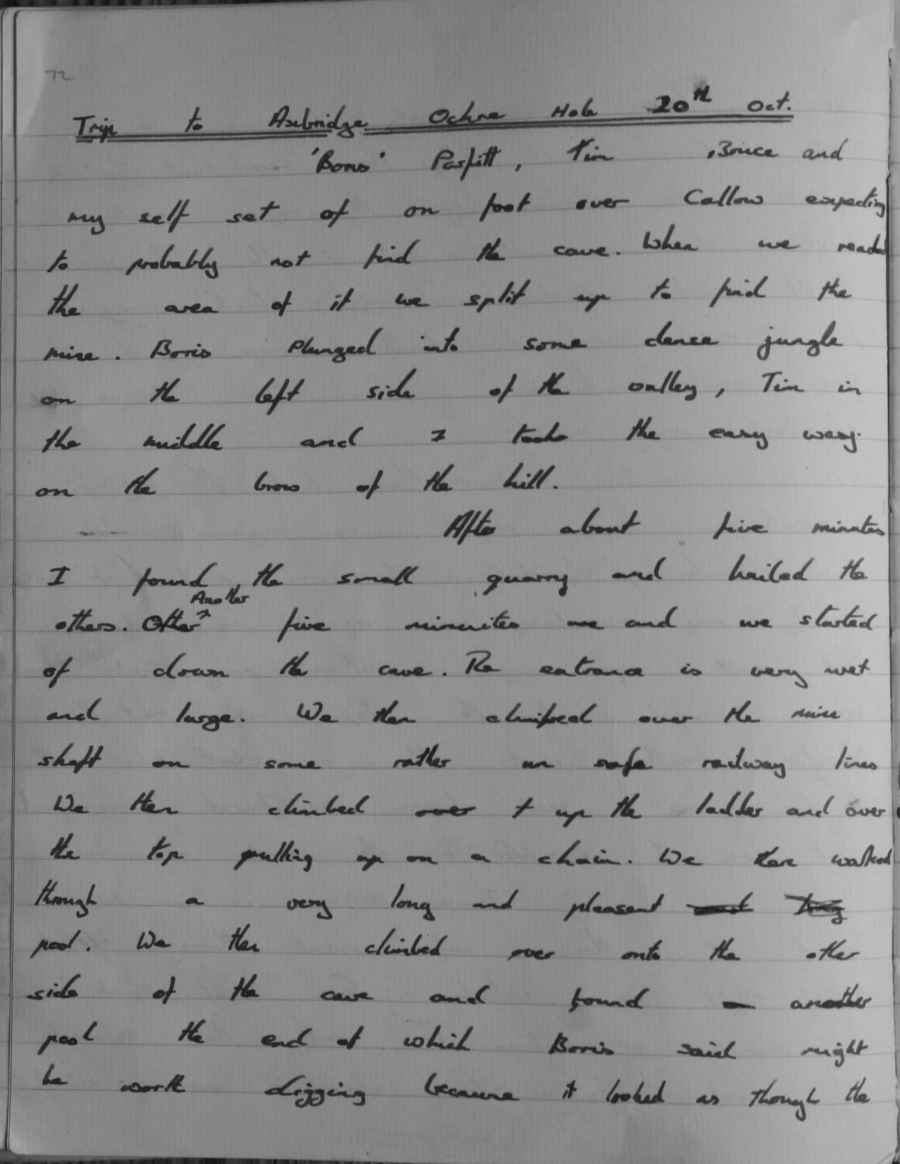 72
Trip to Axbridge Ochre Hole 20th Oct.
'Boris' Parfitt, Tim , Bruce and
my self set of on foot over Callow expecting
to probably not find the cave. When we reached
the area of it we split up to find the
mine. Boris Plunged into some dence jungle
on the left side of the valley, Tim in
the middle and I took the easy way
on the brow of the hill.
After about five minutes
I found the small quarry and hailed the
Another
others. five minuites and we started
of down the cave. The entrance is very wet
and large. We then climbed over the mine
shaft on some rather un safe railway lines
We then climbed over + up the ladder and over
the top pulling up on a chain. We then walked
through a very long and pleasent
pool. We then climbed over onto the other
side of the cave and found another
pool the end of which Boris said might
be worth digging because it looked as though the